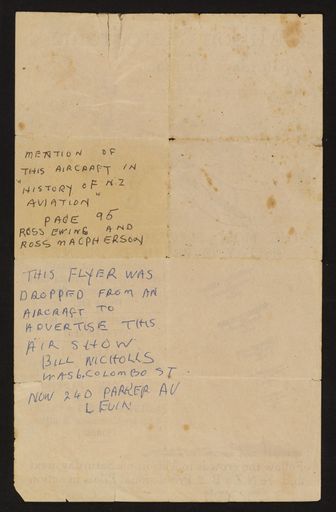 MENTION OF
THIS AIRCRAFT IN
"HISTORY OF N.Z
AVIATION"
PAGE 95
ROSS EWING AND
ROSS MACPHERSON
THIS FLYER WAS
DROPPED FROM AN
AIRCRAFT TO
ADVERTISE THIS
AIR SHOW
BILL NICHOLLS
WAS 6. COLOMBO ST.
NOW 24D PARKER AV
LEVIN